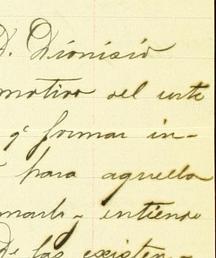 D. Dionisio
motivo del este
qe formar in-
para aquella
marla y entiendo
De las existen-